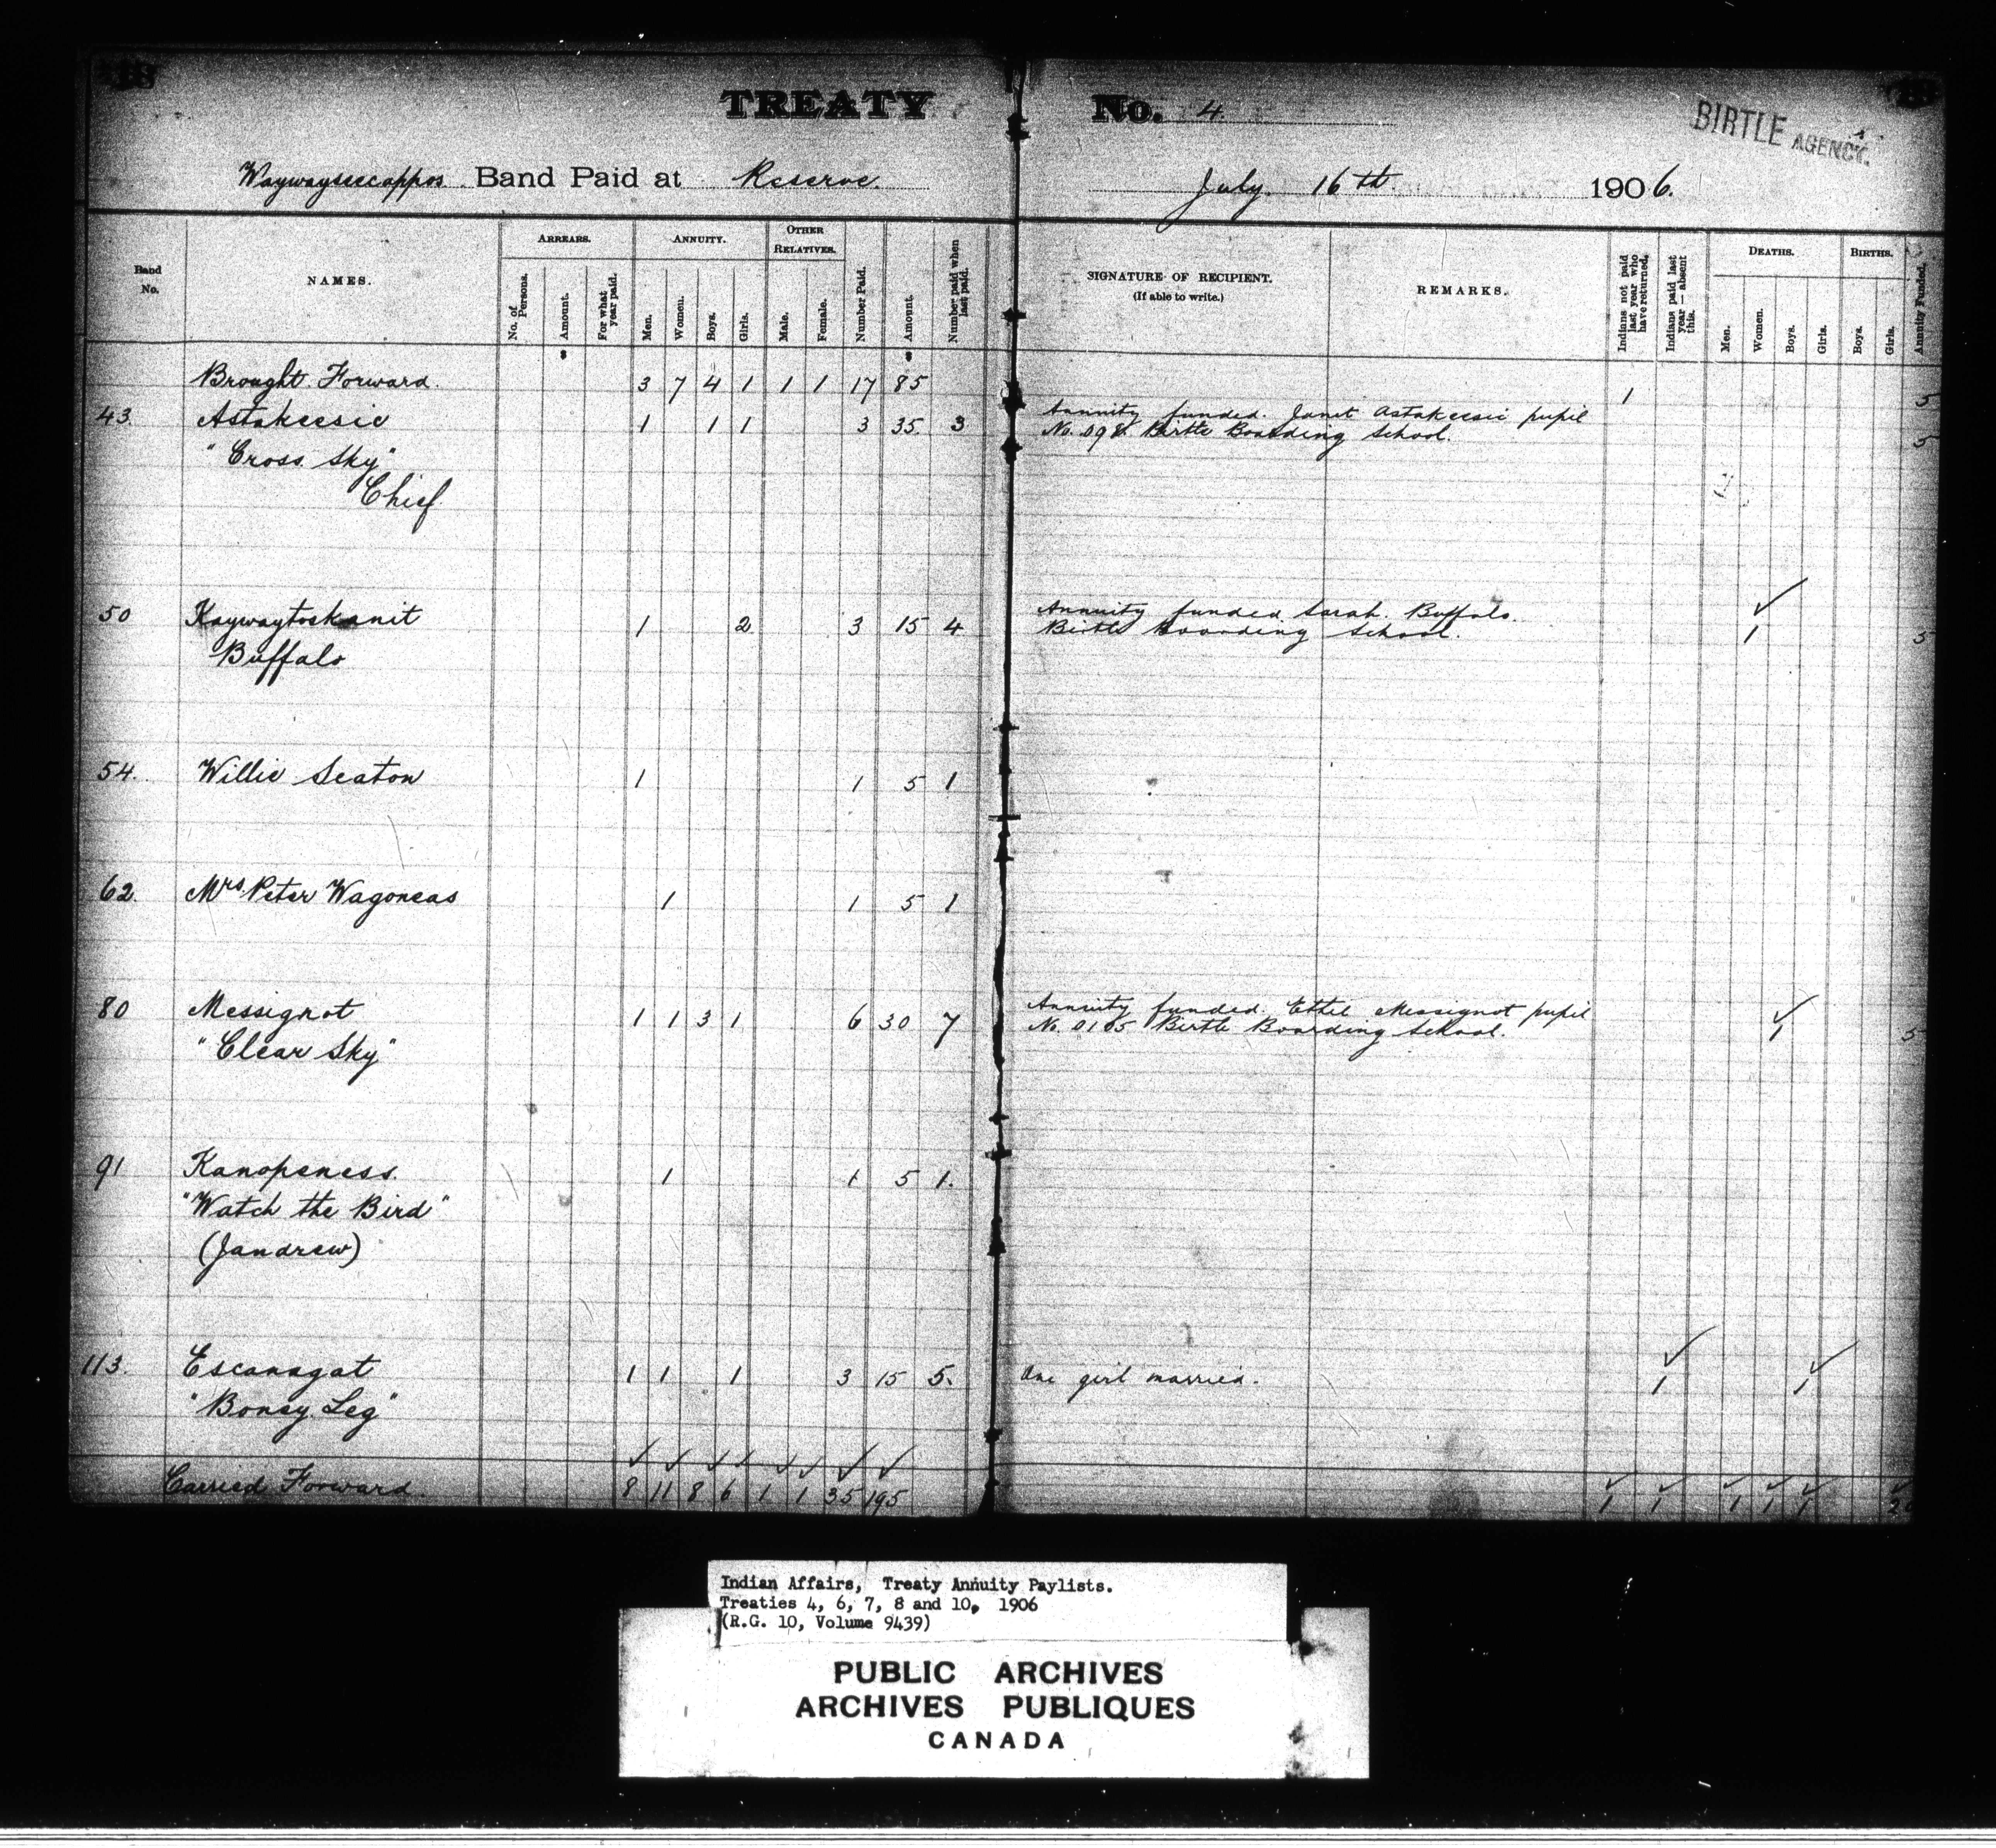 TREATY No. 4.
BIRTLE AGENCY.
Waywayseecappos Band Paid at Reserve. July 16th 1906.
Band No.
NAMES.
ARREARS.
No. of Persons.
Amount.
For what year paid.
ANNUITY.
Men.
Women.
Boys.
Girls.
OTHER RELATIVES.
Male.
Female.
Number Paid.
Amount.
Number paid when last paid.
SIGNATURE OF RECIPIENT.
(If able to write.)
REMARKS.
Indians not paid last year who have returned.
Indians paid last year — absent this.
DEATHS.
Men.
Women.
Boys.
Girls.
BIRTHS.
Boys.
Girls.
Annuity Funded.
Brought Forward. 3 7 4 1 1 1 17 85 1 5
43. Astakeesic 1 1 1 3 35. 3 Annuity funded. Janet Astakeesic pupil 5
No. 098 Birtle Boarding School.
"Cross Sky"
Chief
50 Kaywaytoskanit 1 2 3 15 4 Annuity funded Sarah. Buffalo.
Birtle Boarding School. 1 5
Buffalo
54. Willie Seaton 1 1 5 1
62. Mrs Peter Wagoneas 1 1 5 1
80 Messignot 1 1 3 1 6 30 7 Annuity funded. Ethel Messignot pupil
No. 0105 Birtle Boarding School. 1 5
"Clear Sky"
91 Kanopeness. 1 1 5 1.
"Watch the Bird"
(Jandrew)
113. Escanagat 1 1 1 3 15 5. One girl married. 1 1
"Boney Leg"
Carried Forward. 8 11 8 6 1 1 35 195 1 1 1 1 1
Indian Affairs, Treaty Annuity Paylists.
Treaties 4, 6, 7, 8 and 10, 1906
(R.G. 10, Volume 9439)
PUBLIC ARCHIVES
ARCHIVES PUBLIQUES
CANADA